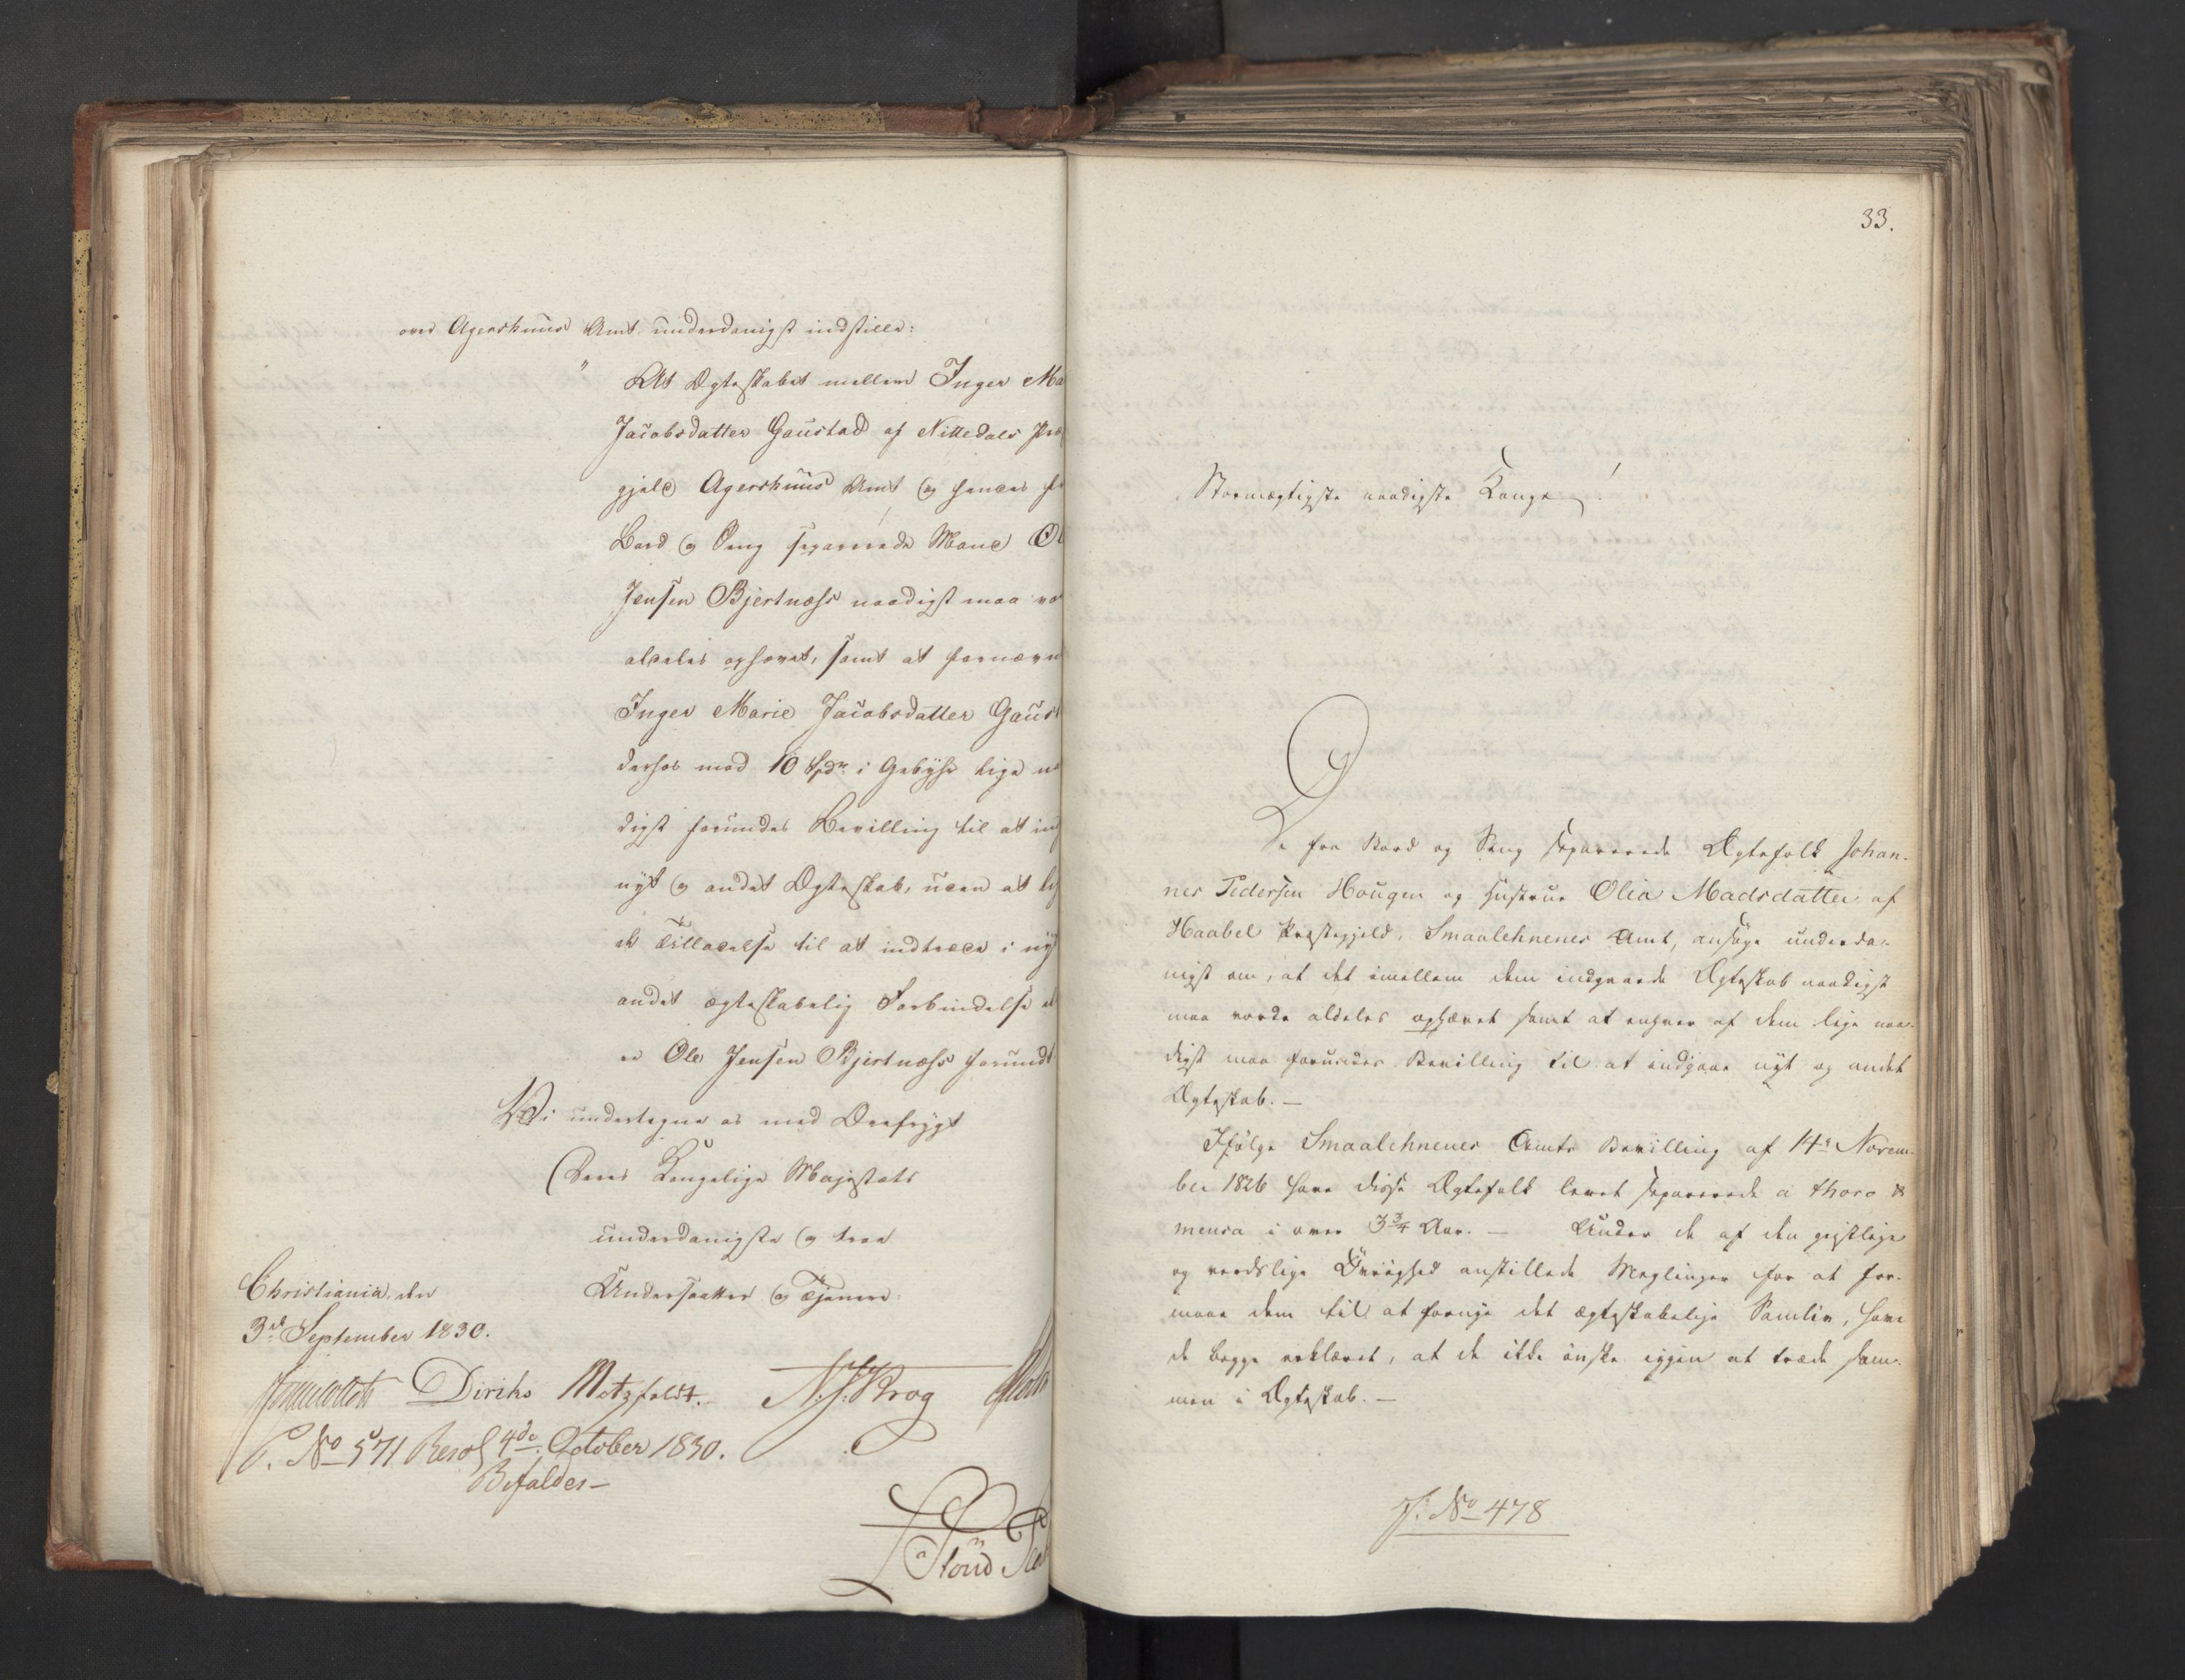 over Agershuus Amt underdanigst indstille:
" At Ægteskabet mellem Inger Ma
Jacobsdatter Gaustad af Nittedals Præ
gjeld Agershuus Amt og hendes fr
Bord og Seng separerede Mand Ol
Jensen Bjertnæss naadigst maa vor
aldeles ophævet, samt at fornævn
Inger Marie Jacobsdatter Gaust
derhos mod 10 Spdr i Gebyhr lige na
digst forundes Bevilling til at ind
nyt og andet Ægteskab, uden at lig
de Tilladelse til at indtræde i nyt
andet ægteskabelig Forbindelse
er Ole Jensen Bjertnæss forundt
Vi undertegne os med Ærefrygt
Deres Kongelige Majestæts
underdanigste og troe
Undersaatter og Tjenere.
Christiania, den
3de September 1830.
Diriks Motzfeldt. N. J. Krog
P. No 571 Resol 4de October 1830.
Bifaldes—
33.
Stormægtigste naadigste Konge!
De fra Bord og Seng separerede Ægtefolk Johan-
nes Pedersen Hougen og Hustrue Olia Madsdatter af
Haabel Præstegjeld, Smaalehnenes Amt, ansøge underda-
nigst om, at det imellem dem indgaaede Ægteskab naadigst
maa vorde aldeles ophævet samt at enhver af dem lige naa-
digst maa forundes Bevilling til at indgaae nyt og andet
Ægteskab. —
Ifølge Smaalehnenes Amts Bevilling af 14de Novem-
ber 1826 have disse Ægtefolk levet separerede a thoro &
mensa i over 3¾ Aar. — Under de af den geistlige
og verdslige Øvrighed anstillede Meglinger for at for-
maae dem til at fornye det ægteskabelige Samliv, have
de begge erklæret, at de ikke ønske igjen at træde sam-
men i Ægteskab. —
J. No 478